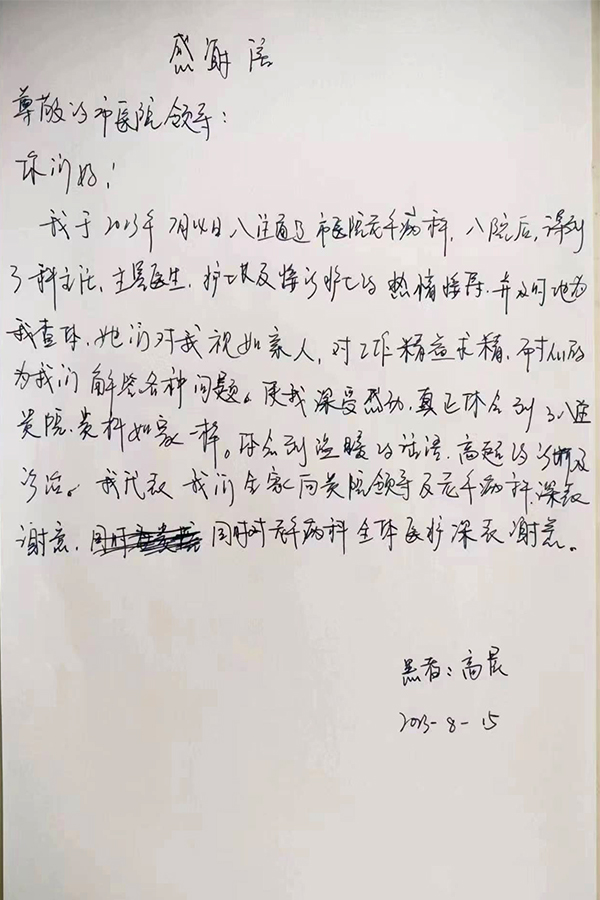 感谢信
尊敬的市医院领导:
你们好!
我于2023年7月14日入住通辽市医院老年病科,入院后,得到
了科主任、主管医生、护士长及接诊护士的热情接待、并及时地为
我查体、她们对我视如家人,对工作精益求精,耐心的
为我们解答各种问题。使我深受感动,真正体会到了入住
贵院、贵科如家一样。体会到温暖的话语、高超的诊断及
诊治。我代表我们全家向贵院领导及老年病科深表
谢意,同时对老年病科全体医护深表谢意。
患者:高
2023-8-15